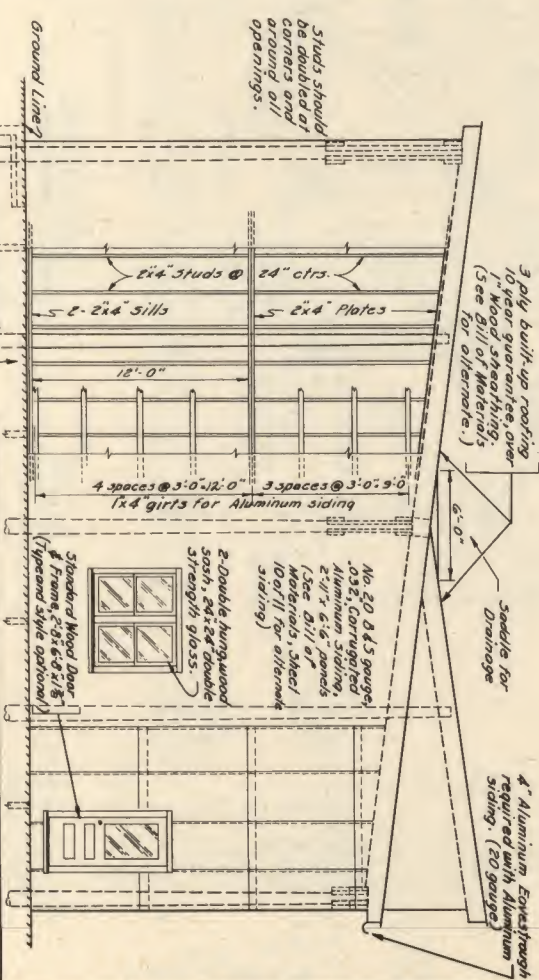 3 ply built-up roofing
10 year guarantee, over
1" Wood sheathing.
(See Bill of Materials
for alternate.)
Saddle for
Drainage
4" Aluminum Eavestrough
required with Aluminum
siding. (20 gauge)
6'-0"
Studs should
be doubled at
corners and
around all
openings.
2"x4" Studs @ 24" ctrs.
2-2"x4" Sills
2"x4" Plates
12'-0"
4 spaces @ 3'-0"=12'-0"
3 spaces @ 3'-0"=9'-0"
1"x4" girts for Aluminum siding
No. 20 B & S gauge,
.032, Corrugated
Aluminum Siding,
2'-11"x 6'-6" panels
(See Bill of
Materials, Sheet
10 of 11 for alternate
siding)
2-Double hung wood
sash, 24"x24" double
strength glass.
Standard Wood Door
& Frame, 2'-8"x6'-8"x1 3/8"
(Type and style optional)
Ground Line